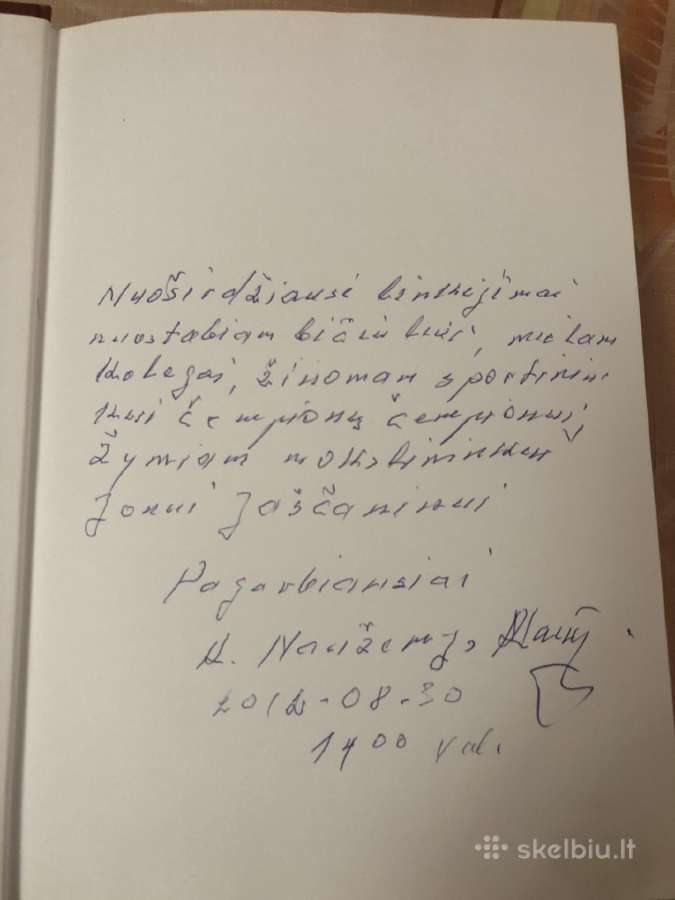 Nuoširdžiausi linkėjimai
nuostabiam bičiuliui, mielam
kolegai, žinomam sportinin
kui čempionų čempionui,
žymiam mokslininkui
Jonui Jaščaninui
Pagarbiausiai
2012-08-30
1400 val.
skelbiu.lt